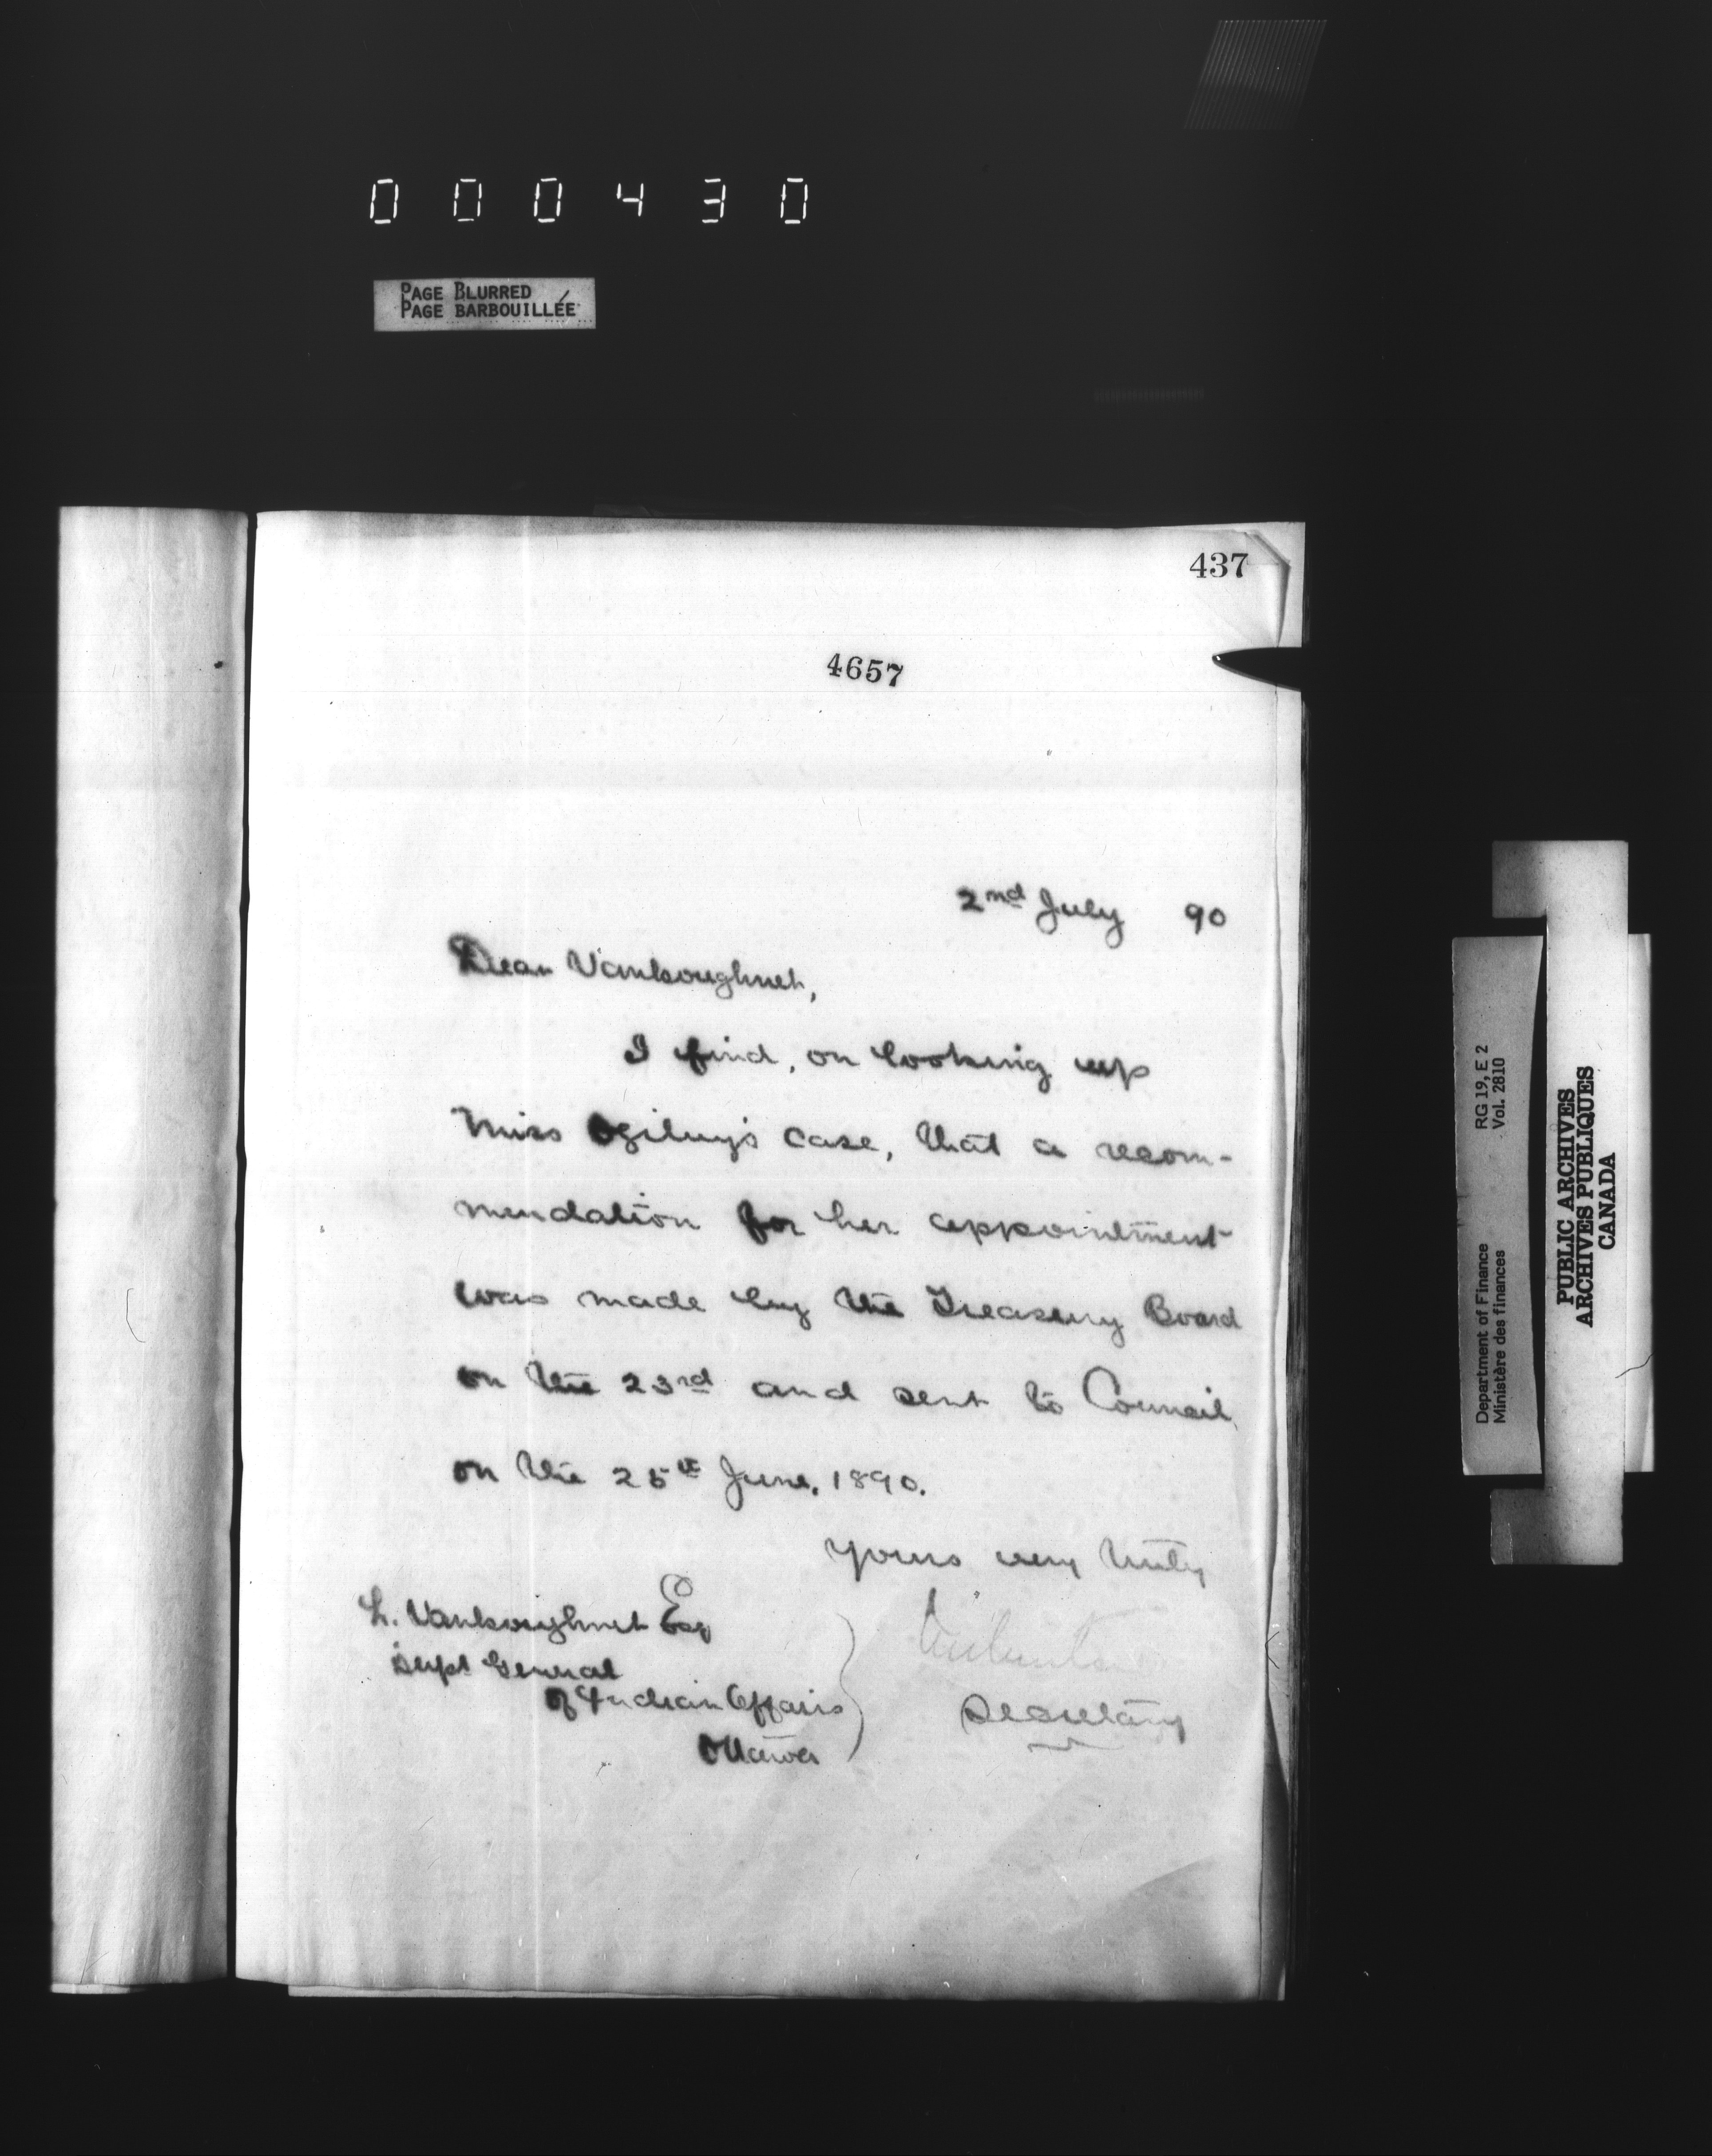 000430
PAGE BLURRED
PAGE BARBOUILLÉE
437
4657
2nd July 90
Dear Vankoughnet,
I find, on looking up
Miss Ogilvy's case, that a recom-
mendation for her appointment
was made by the Treasury Board
on the 23rd and sent to Council
on the 25th June, 1890.
Yours very truly
L. Vankoughnet Esq
Supt General
of Indian Affairs
Ottawa
Secretary
Department of Finance
Ministère des finances
RG 19, E 2
Vol. 2810
PUBLIC ARCHIVES
ARCHIVES PUBLIQUES
CANADA